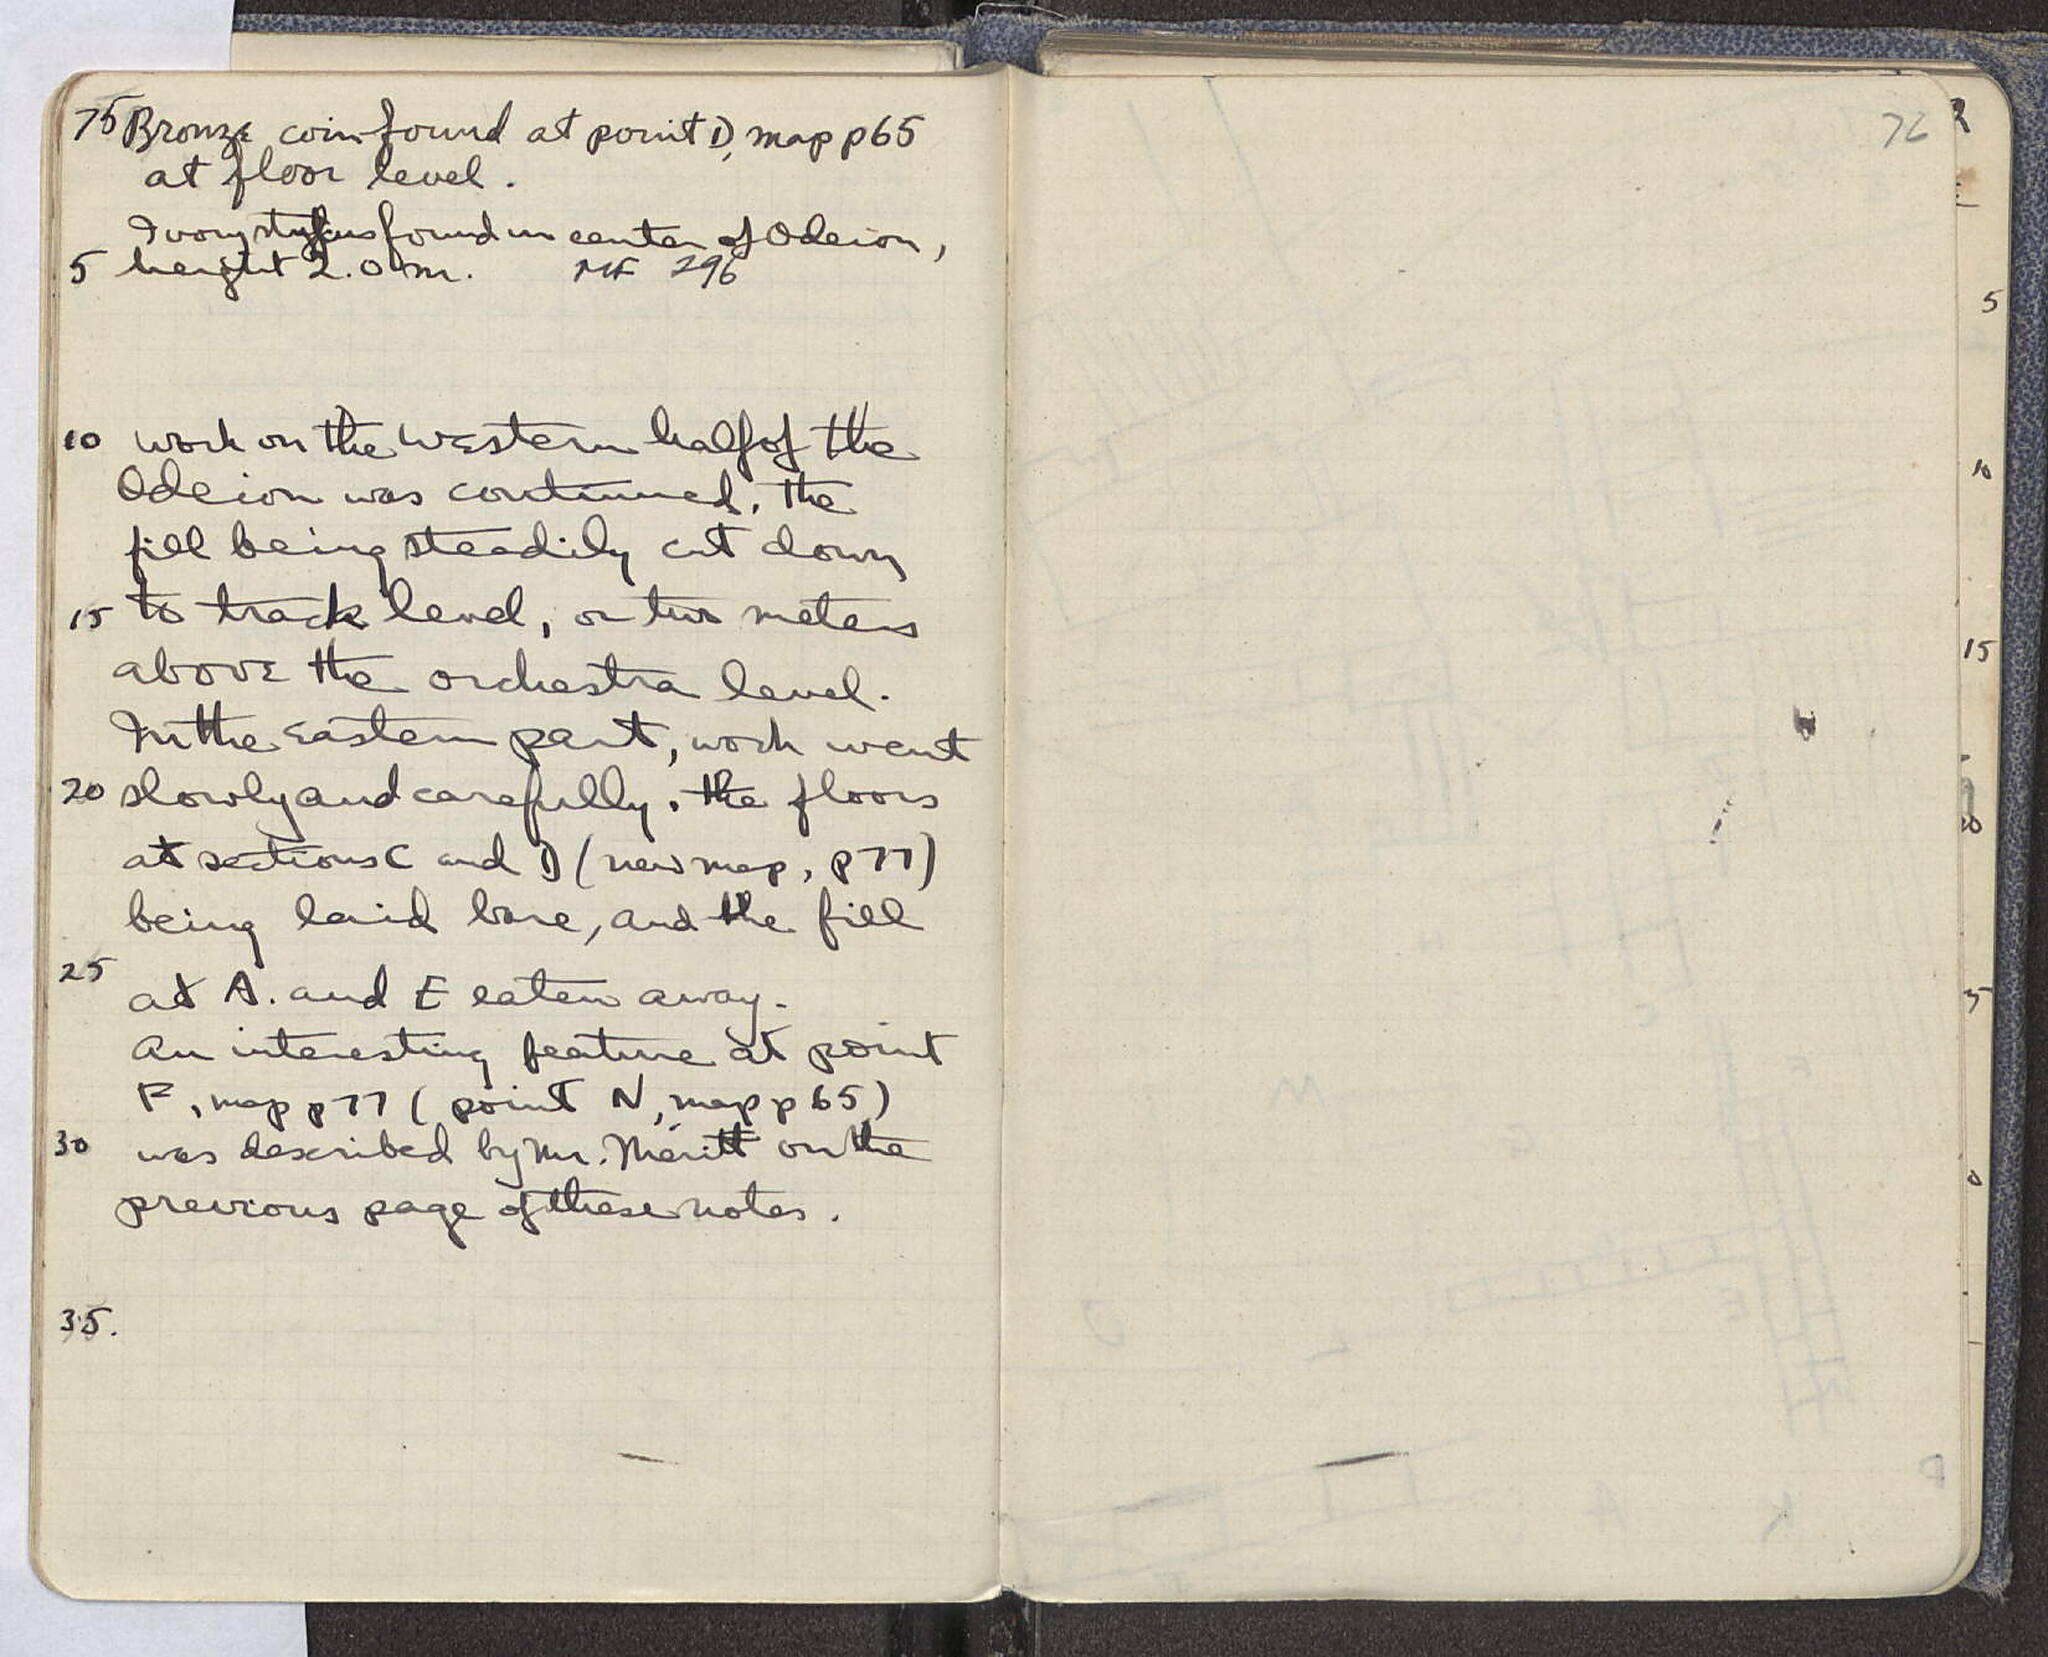 75 Bronze coin found at point D, map p65
at floor level.
Ivory stylus found in center of Odeion,
5 height 2.0 m. MF 296
10 work on the western half of the
Odeion was continued, the
fill being steadily cut down
15 to track level, or two meters
above the orchestra level.
In the eastern part, work went
20 slowly and carefully, the floors
at sections C and D (new map, p77)
being laid bare, and the fill
25
at A. and E eaten away.
An interesting feature at point
F, map p77 (point N, map p65)
30 was described by Mr. Meritt on the
previous page of these notes.
35.
76
5
10
15
20
5
0